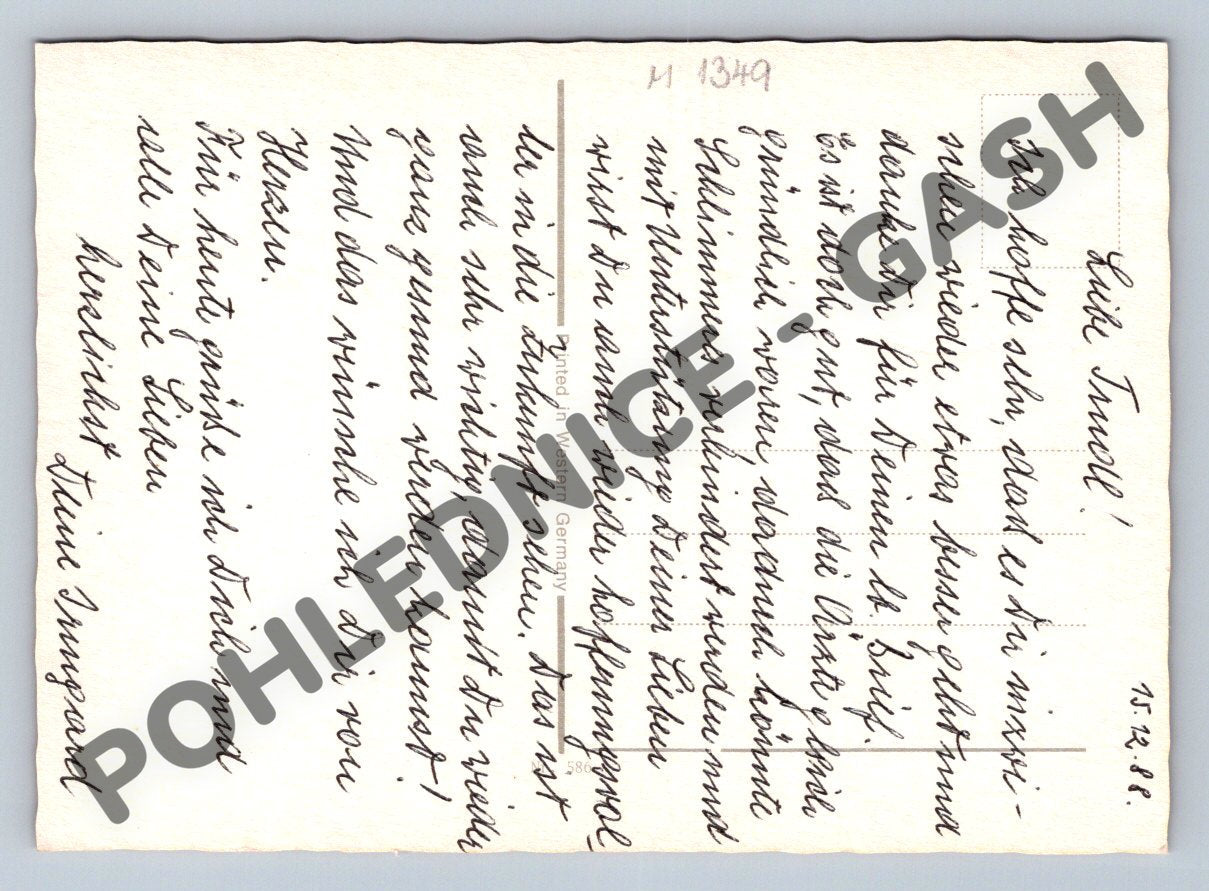 15.12.88.
Liebe Trudl!
Ich hoffe sehr, dass es Dir inzwi-
schen wieder etwas besser geht und
danke Dir für Deinen lb. Brief.
Es ist doch gut, dass die Ärzte gleich
gründlich waren, dadurch könnte
Schlimmes verhindert werden und
mit Unterstützung Deiner Lieben
wirst Du auch wieder hoffnungsvol-
ler in die Zukunft sehen. Das ist
auch sehr wichtig, damit Du wieder
ganz gesund werden kannst!
Und das wünsche ich Dir von
Herzen.
Für heute grüße ich Dich und
alle Deine Lieben
herzlichst
Deine Irmgard
M 1349
Printed in Western Germany
586
POHLEDNICE - GASH